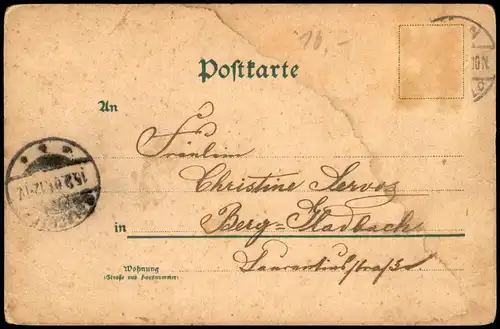 10,-
Postkarte
An
Fräulein
Christine Servos
in Berg=Gladbach
Laurentiusstraße
Wohnung
(Straße und Hausnummer)